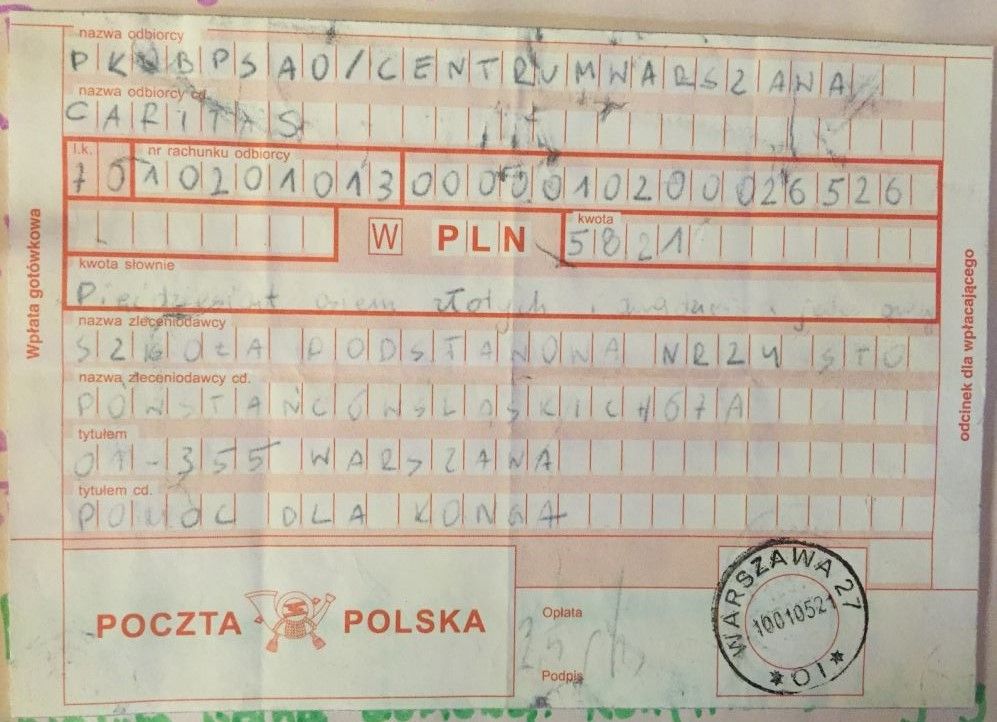 nazwa odbiorcy
PKOBPSAO/CENTRUMWARSZAWA
nazwa odbiorcy cd.
CARITAS
l.k. nr rachunku odbiorcy
75 10201013 0000010200026526
W PLN kwota 5821
kwota słownie
Pięćdziesiąt osiem złotych i
nazwa zleceniodawcy
SZKOŁA PODSTAWOWA NRZY STO
nazwa zleceniodawcy cd.
POWSTAŃCÓWŚLĄSKICH67A
tytułem
01-355 WARSZAWA
tytułem cd.
POMOC DLA KONGA
Wpłata gotówkowa
odcinek dla wpłacającego
POCZTA POLSKA
Opłata
Podpis
WARSZAWA 27
10010521